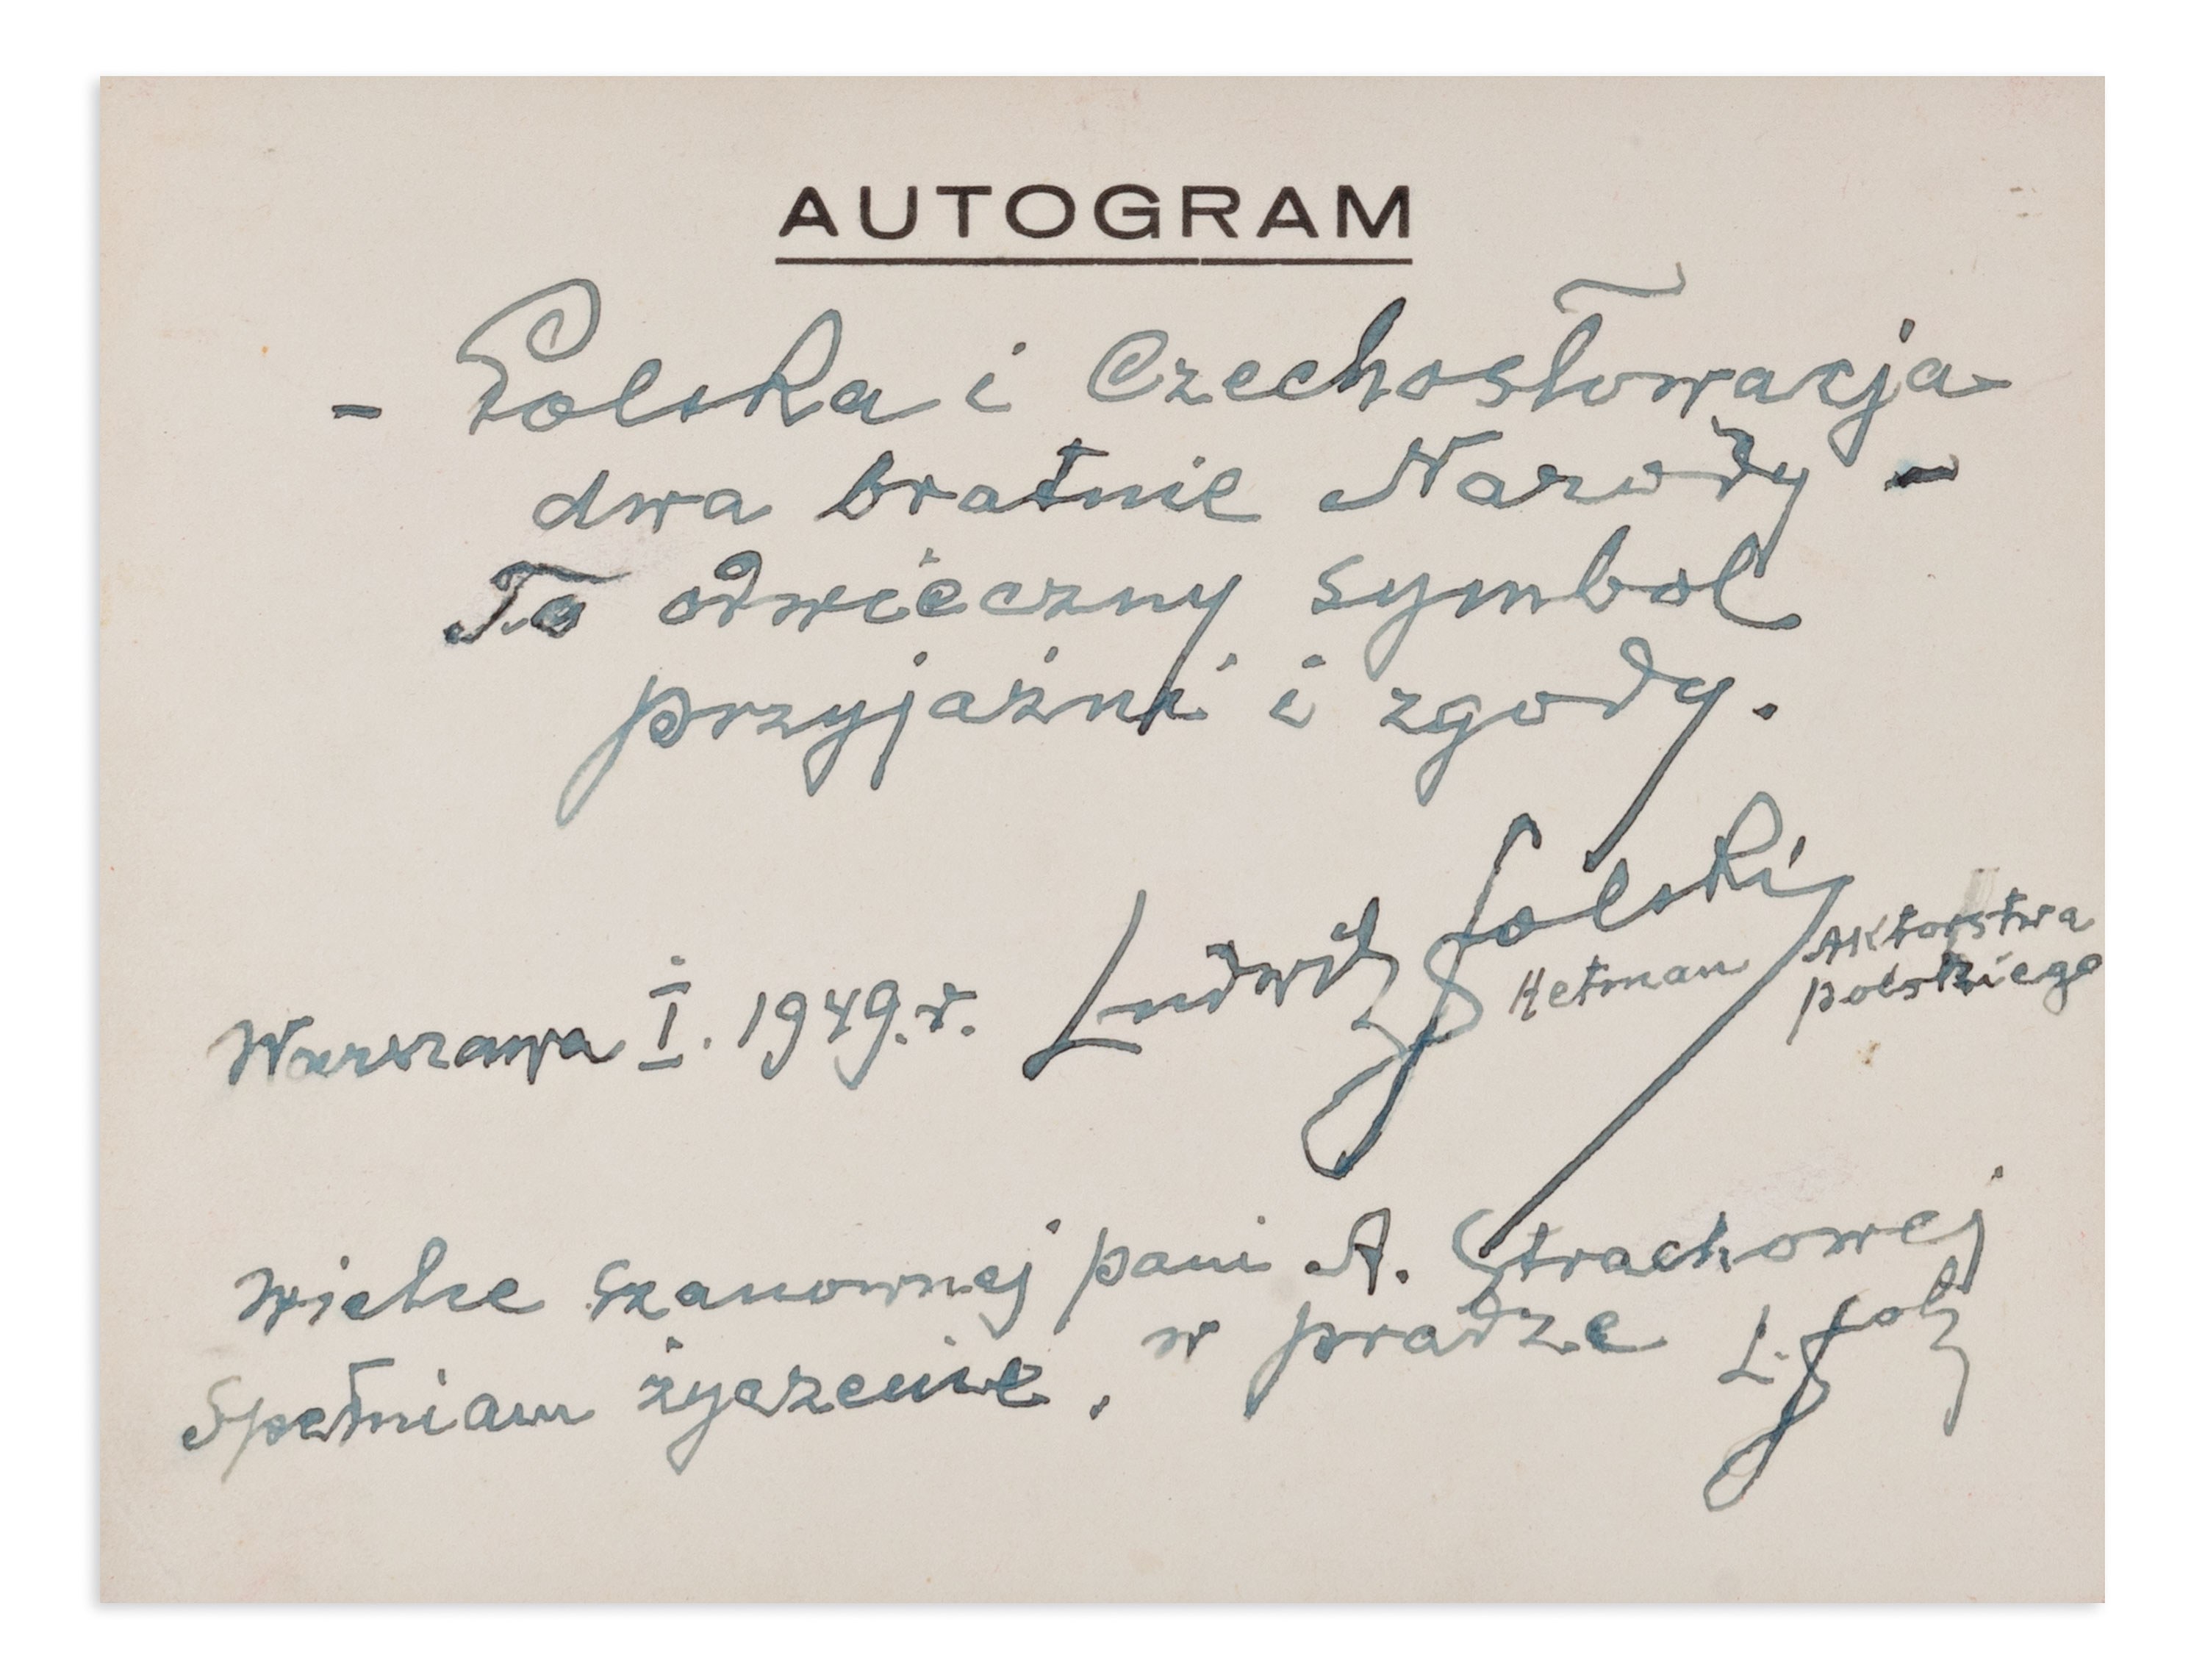 AUTOGRAM
- Polska i Czechosłowacja
dwa bratnie Narody -
To odwieczny symbol
przyjaźni i zgody.
Ludwik Solski
Hetman Aktorstwa
polskiego
Warszawa I. 1949.r.
Wielce szanownej pani A. Strachowej
Spełniam życzenie, w pradze L. Sols